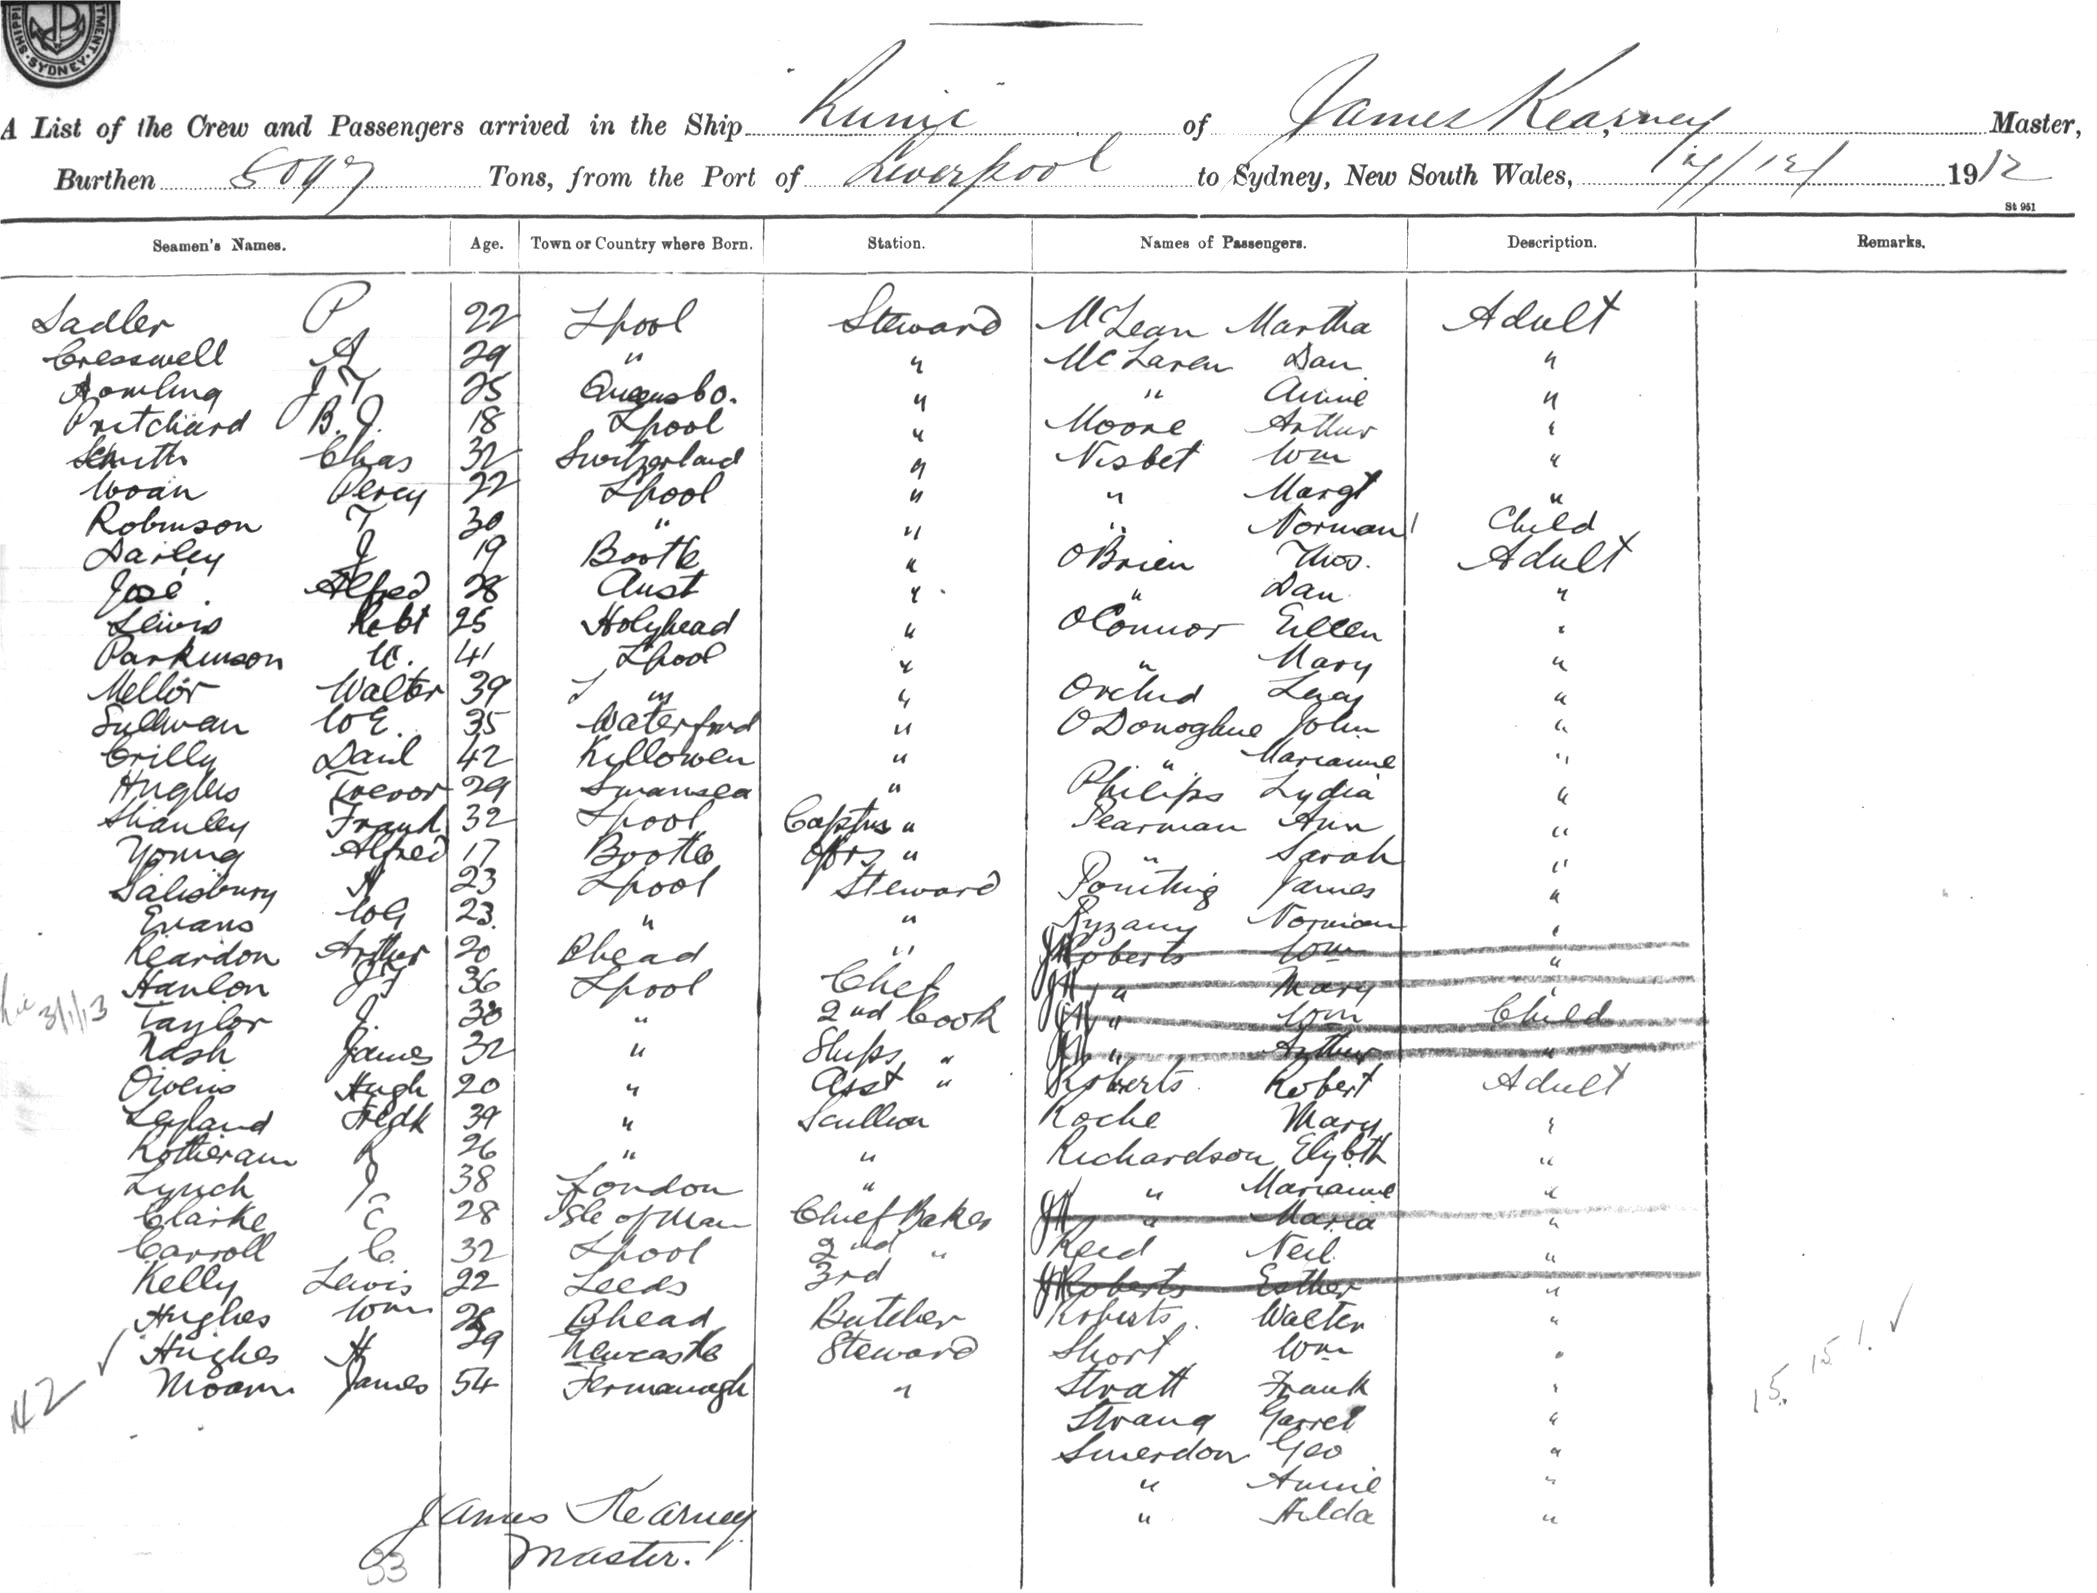 SHIPPI TMENT. SYDNEY.
A List of the Crew and Passengers arrived in the Ship Runic of James Kearney, Master,
Burthen Tons, from the Port of Liverpool to Sydney, New South Wales, 1912
St 951
Seamen's Names. Age. Town or Country where Born. Station. Names of Passengers. Description. Remarks.
Sadler P 22 Lpool Steward McLean Martha Adult
Cresswell A 29 " " McLaren Dan "
Rowling J T 25 Queensbo. " " Annie "
Pritchard B. J. 18 Lpool " Moore Arthur "
Smith Chas 32 Switzerland " Nisbet Wm "
Woan Percy 22 Lpool " " Margt "
Robinson T 30 " " " Norman Child
Darley J 19 Bootle " OBrien Thos. Adult
José Alfred 28 Aust " " Dan "
Lewis Robt 25 Holyhead " OConnor Eileen "
Parkinson W. 41 Lpool " " Mary "
Mellor Walter 39 " " Orchid "
Sullivan W E. 35 Waterford " ODonoghue John "
Crilly Danl 42 Killowen " " Marianne "
Hughes Trevor 29 Swansea " Philips Lydia "
Shanley Frank 32 Lpool Captns " Pearman Ann "
Young Alfred 17 Bootle Offrs " " Sarah "
Salisbury H 23 Lpool Steward James "
Evans W G 23. " " Norman "
Reardon Arthur 20 Bhead " Roberts Wm "
Hanlon J F 36 Lpool Chef " Mary "
3/1/13 Taylor J. " 2nd Cook " Wm Child
Nash James 32 " Ships " " Arthur "
Owens Hugh 20 " Asst " Roberts Robert Adult
Leyland Fredk 39 " Scullion Roche Mary "
Rotheram R 26 " " Richardson Elizbth "
Lynch J 38 London " " Marianne "
Clarke C 28 Isle of Man Chief Baker " Maria "
Carroll C. 32 Lpool 2nd " Reid Neil "
Kelly Lewis 22 Leeds 3rd Roberts Esther "
Hughes Wm 28 Bhead Butcher Roberts Walter "
Hughes H 29 Newcastle Steward Short Wm "
42 James 54 Fermanagh " Stratt Frank " 15. 15 1.
Strang Garret "
Smerdon Geo "
" Annie "
" Hilda "
James Kearney
33 Master.